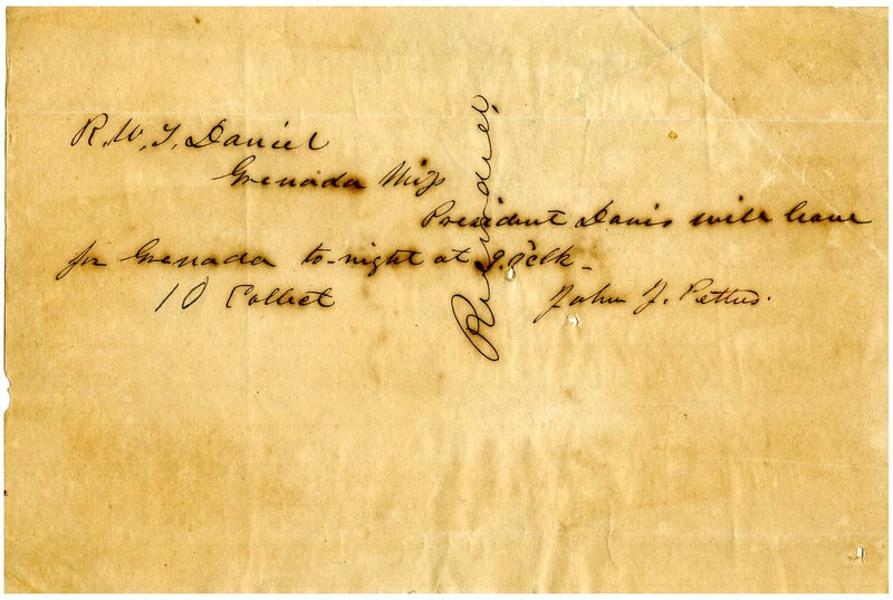 R. W. T. Daniel
Grenada Miss
President Davis will leave
for Grenada to-night at 9. o'clk-
10 Collect
John J. Pettus.